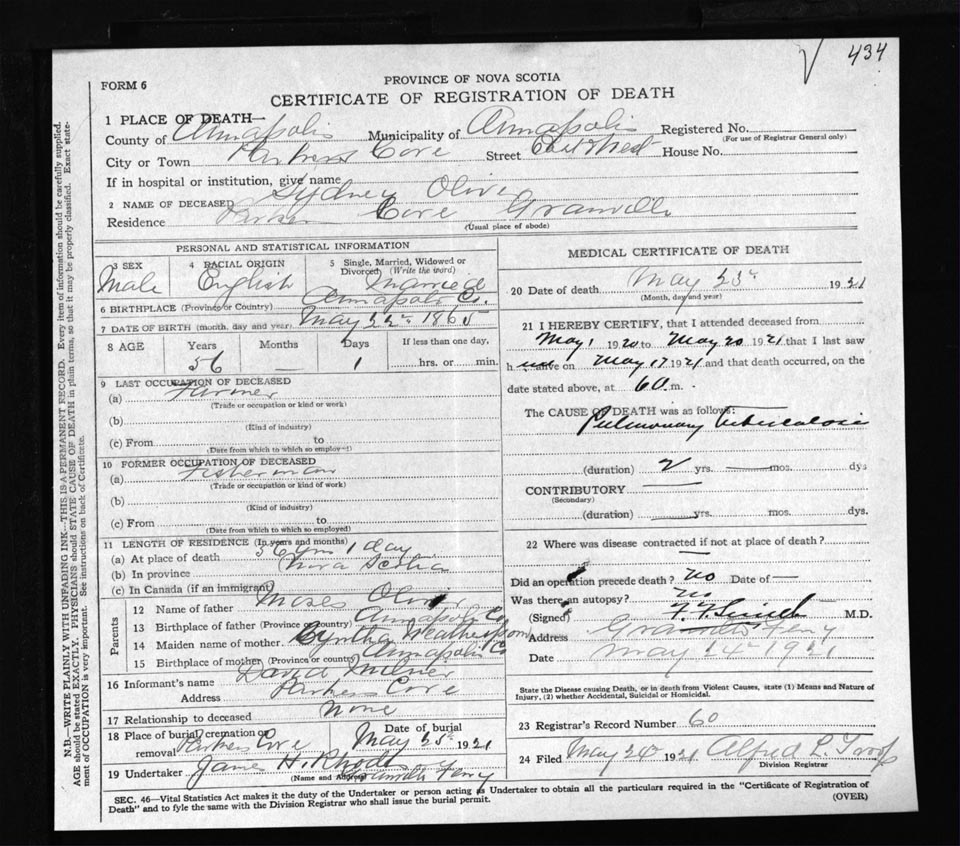 434
FORM 6
PROVINCE OF NOVA SCOTIA
CERTIFICATE OF REGISTRATION OF DEATH
1 PLACE OF DEATH—
County of Annapolis Municipality of Annapolis Registered No.
(For use of Registrar General only)
City or Town Parkers Cove Street House No.
If in hospital or institution, give name
2 NAME OF DECEASED Sydney Oliver
Residence Parkers Cove Granville
(Usual place of abode)
PERSONAL AND STATISTICAL INFORMATION
3 SEX Male
4 RACIAL ORIGIN English
5 Single, Married, Widowed or Divorced (Write the word) Married
6 BIRTHPLACE (Province or Country) Annapolis Co.
7 DATE OF BIRTH (month, day and year) May 22nd 1865
8 AGE Years Months Days If less than one day,
56 — 1 hrs. or min.
9 LAST OCCUPATION OF DECEASED
(a) Farmer
(Trade or occupation or kind of work)
(b)
(Kind of industry)
(c) From to
(Date from which to which so employed)
10 FORMER OCCUPATION OF DECEASED
(a) Fisherman
(Trade or occupation or kind of work)
(b)
(Kind of industry)
(c) From to
(Date from which to which so employed)
11 LENGTH OF RESIDENCE (In years and months)
(a) At place of death 56 yrs 1 day
(b) In province Nova Scotia
(c) In Canada (if an immigrant)
Parents
12 Name of father Moses Oliver
13 Birthplace of father (Province or country) Annapolis Co
14 Maiden name of mother Cynthia Weatherspoon
15 Birthplace of mother (Province or country) Annapolis Co
16 Informant's name David Milner
Address Parkers Cove
17 Relationship to deceased None
18 Place of burial, cremation or removal Parkers Cove Date of burial May 25th 1921
19 Undertaker James H. Rhodes Granville Ferry
(Name and Address)
MEDICAL CERTIFICATE OF DEATH
20 Date of death May 23rd 1921
(Month, day and year)
21 I HEREBY CERTIFY, that I attended deceased from
May 1 1920 to May 20 1921 that I last saw
h alive on May 17 1921 and that death occurred, on the
date stated above, at 6 m.
The CAUSE OF DEATH was as follows:
Pulmonary Tuberculosis
(duration) 2 yrs. — mos. dys
CONTRIBUTORY
(Secondary)
(duration) yrs. mos. dys.
22 Where was disease contracted if not at place of death?
Did an operation precede death? No Date of —
Was there an autopsy? No
(Signed) M.D.
Address Granville Ferry
Date May 24th 1921
State the Disease causing Death, or in death from Violent Causes, state (1) Means and Nature of
Injury, (2) whether Accidental, Suicidal or Homicidal.
23 Registrar's Record Number 60
24 Filed May 24th 1921 Alfred L. Troop
Division Registrar
SEC. 46—Vital Statistics Act makes it the duty of the Undertaker or person acting as Undertaker to obtain all the particulars required in the "Certificate of Registration of
Death" and to fyle the same with the Division Registrar who shall issue the burial permit.
(OVER)
N.B.—WRITE PLAINLY WITH UNFADING INK—THIS IS A PERMANENT RECORD. Every item of information should be carefully supplied.
AGE should be stated EXACTLY. PHYSICIANS should STATE CAUSE OF DEATH in plain terms, so that it may be properly classified. Exact state-
ment of OCCUPATION is very important. See instructions on back of Certificate.